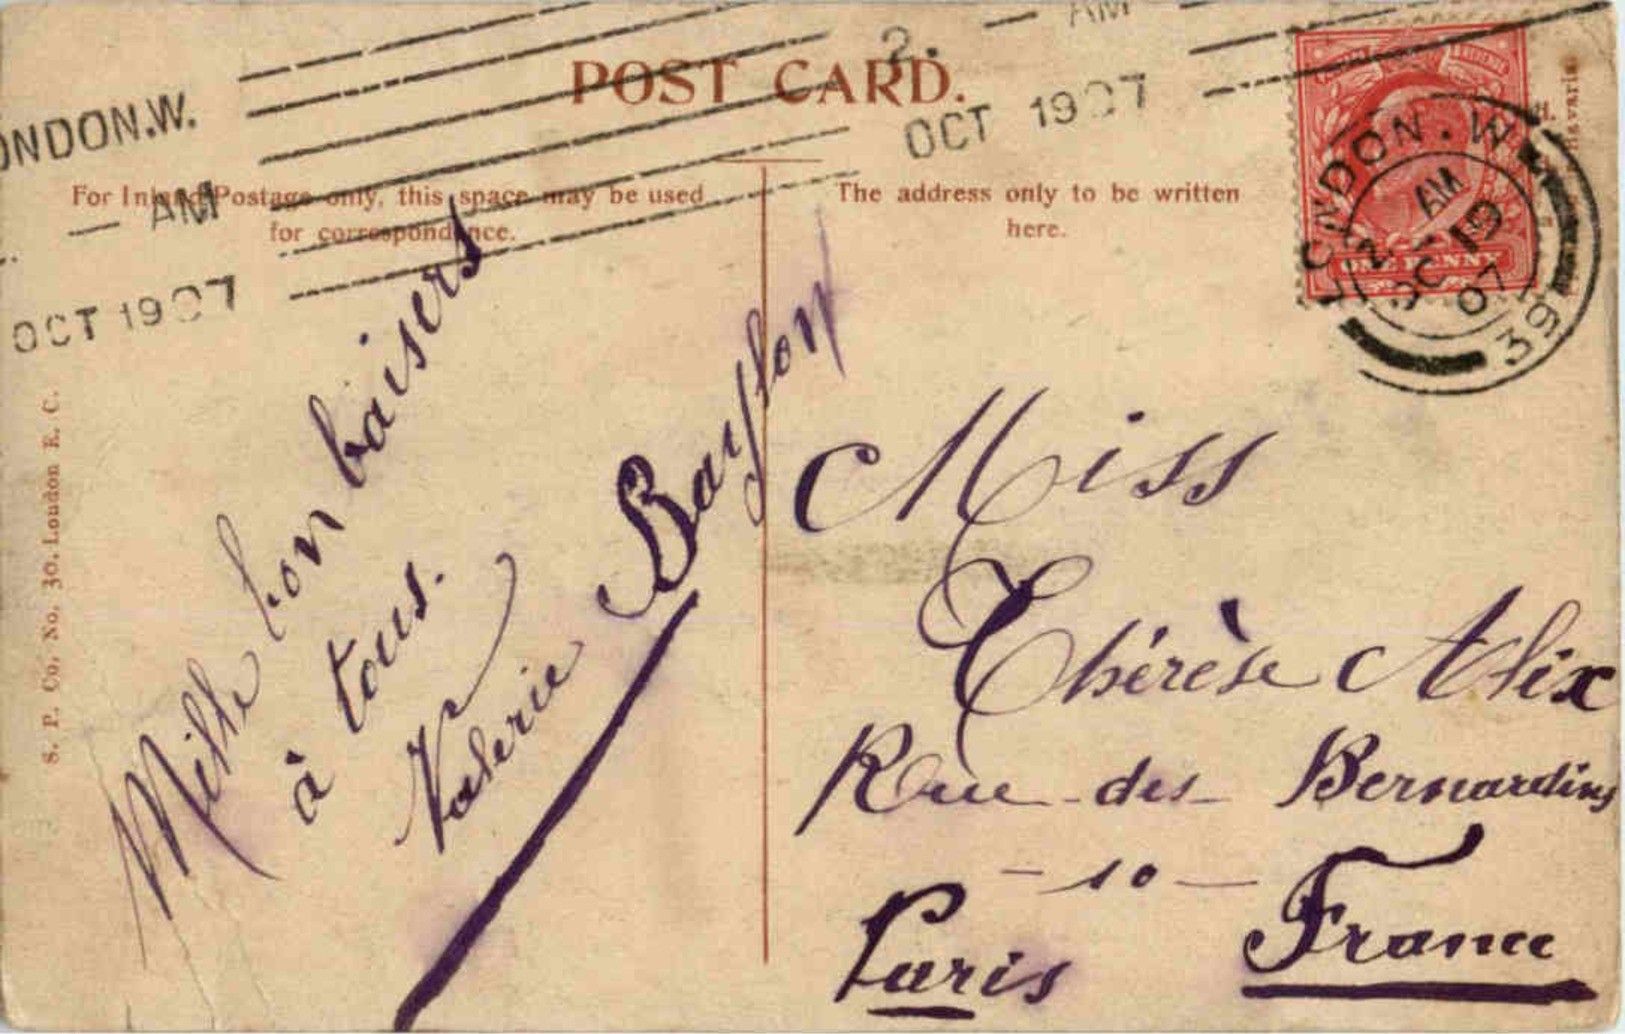 LONDON.W.
AM
OCT 19 07
2.
AM
OCT 19 07
POST CARD.
For Inland Postage only, this space may be used
for correspondence.
The address only to be written
here.
LONDON.W
AM
2
OC 19
07
39
ONE PENNY
S. P. Co, No. 30. London E. C.
Mille bon baisers
à tous.
Valerie Bayfon
Miss
Thérèse Alix
Rue des Bernardins
- 10 -
Paris France